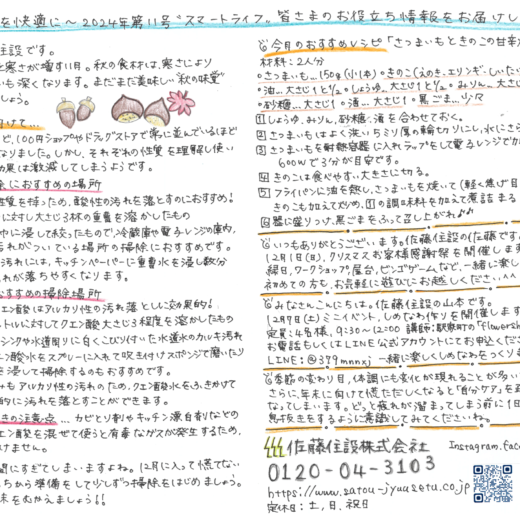 を快適に〜2024年第11号 "スマートライフ" 皆さまのお役立ち情報をお届けし
住設です。
と寒さが増す11月。秋の食材は、寒さにより
も深くなります。まだまだ美味しい"秋の味覚"
しょう。
けて…
ど、100円ショップやドラッグストアで常に並んでいるほど
なりました。しかし、それぞれの性質を理解し使い
効果は激減してしまうようです。
除におすすめの場所
性質を持つため、酸性の汚れを落とすのにおすすめ!
に対し大さじ3杯の重曹を溶かしたもの
中に浸して絞ったもので、冷蔵庫や電子レンジの庫内、
汚れがついている場所の掃除におすすめです。
汚れには、キッチンペーパーに重曹水を浸し数分
れが落ちやすくなります。
おすすめの掃除場所
エン酸はアルカリ性の汚れ落としに効果的!
トルに対してクエン酸大さじ3程度を溶かしたもの
シングや水道周りに白くこびり付いた水道水のカルキ汚れ
エン酸水をスプレーに入れて吹き付けスポンジで磨いたり
を浸して掃除するのもおすすめです。
みもアルカリ性の汚れのため、クエン酸水をふきかけて
的に汚れを落とすことができます。
きの注意点…カビとり剤やキッチン漂白剤などの
エン酸を混ぜて使うと有毒なガスが発生するため、
けません。
間にすぎてしまいますよね。12月に入って慌てない
ちから準備をして少しずつ掃除をはじめましょう。
末をむかえましょう!!
今月のおすすめレシピ「さつまいもときのこの甘辛
材料:2人分
さつまいも…150g(小1本) きのこ(えのき、エリンギ、しいた
油…大さじ1と1/2 しょうゆ…大さじ1と1/2 みりん…大さじ
砂糖…大さじ1 酒…大さじ1 黒ごま…少々
1 しょうゆ、みりん、砂糖、酒を合わせておく。
2 さつまいもはよく洗い5ミリ厚の輪切りにし、水にさら
3 さつまいもを耐熱容器に入れラップをして電子レンジで加
600Wで3分が目安です。
4 きのこは食べやすい大きさに切る。
5 フライパンに油を熱し、さつまいもを焼いて(軽く焦げ目
きのこも加えて炒め、1の調味料を加えて煮詰まる
6 器に盛りつけ、黒ごまをふって召し上がれ♪♪
いつもありがとうございます。佐藤住設の佐藤です
12月1日(日)、クリスマスお客様感謝祭を開催しま
縁日、ワークショップ、屋台、ビンゴゲームなど、一緒に楽し
初めての方も、お気軽に遊びにお越しください^^
みなさんこんにちは。佐藤住設の山本です。
12月7日(土)ミニイベント、しめなわ作りを開催します
定員:4名様、9:30〜12:00 講師:駅東町の「flowersh
お電話もしくはLINE公式アカウントにてお申込くださ
LINE:@399mnnxj 一緒に楽しくしめなわをつくりま
季節の変わり目、体調にも変化が現れることが多い
さらに、年末に向けて慌ただしくなると「自分ケア」を
なってしまいます。どっと疲れが溜まってしまう前に1日
息抜きをするように意識してみてくださいね。
佐藤住設株式会社
Instagram.face
0120-04-3103
https://www.satou-jyuusetu.co.jp
定休日:土、日、祝日